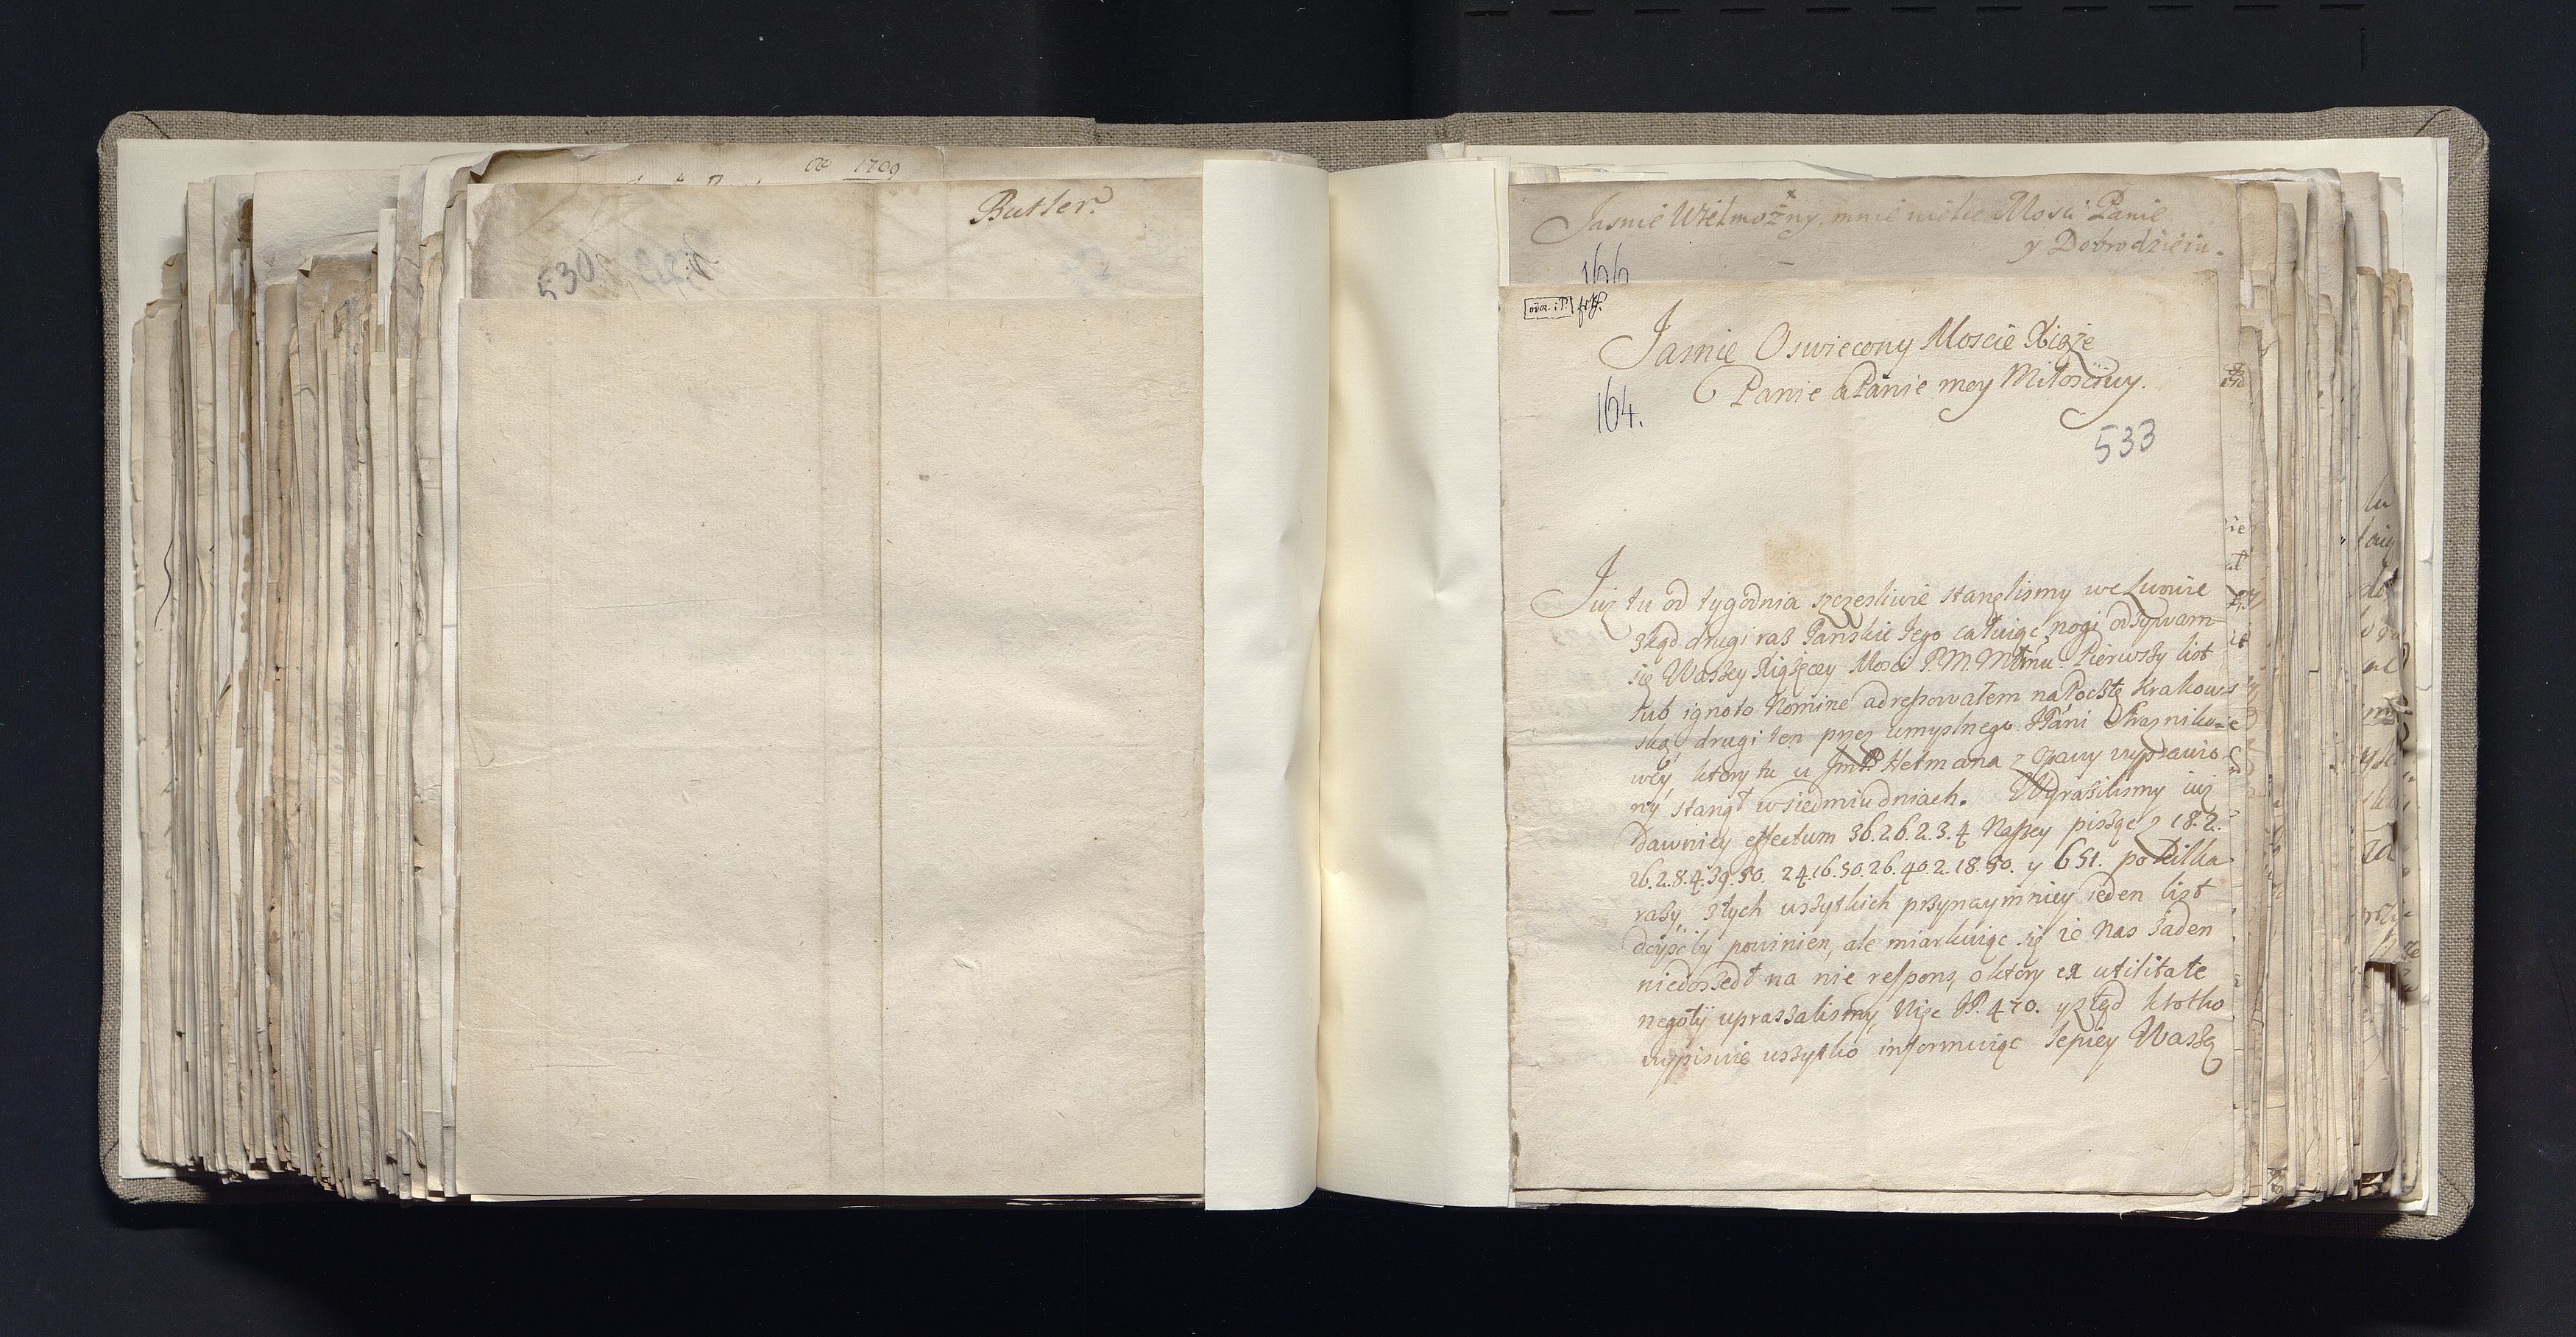 1709
Butler
530
Jasnie Wielmożny, mnie wielce Mosci Panie
y Dobrodzieiu.
166
Jasnie Oswiecony Moscie Xiąże
Panie a Panie moy Miłosciwy.
164.
533
Juz tu od tygodnia szczesliwie stanęlismy we Lwowie
zkąd drugi raz Panskie Jego całuiąc nogi odzywam
się Waszey Xiążęcey Mosci P. M. Mmu. Pierwszy list
sub ignoto Nomine adressowałem na Pocztę Krakow=
ską drugi ten przez umyslnego JPani Strażniko=
wey, ktory tu u JmP. Hetmana z Opawy wyprawio
ny stanął w siedmiu dniach. Wyrazilismy iuz
dawniey effectum 36.26.2.3.4 Naszey pisząc z 18.2.
26.2.8.4.39.50. 24.16.50.26.40.2.18.50. y 651. po kilka
razy, z tych wszytkich przynaymniey ieden list
doyść by powinien, ale miarkuiąc się że Nas żaden
niedoszedł na nie respons, o ktory ex utilitate
negotÿ upraszalismy, Niże JP. 470. yztąd krotko
wypiswie wszytko informuiąc lepiey Waszą